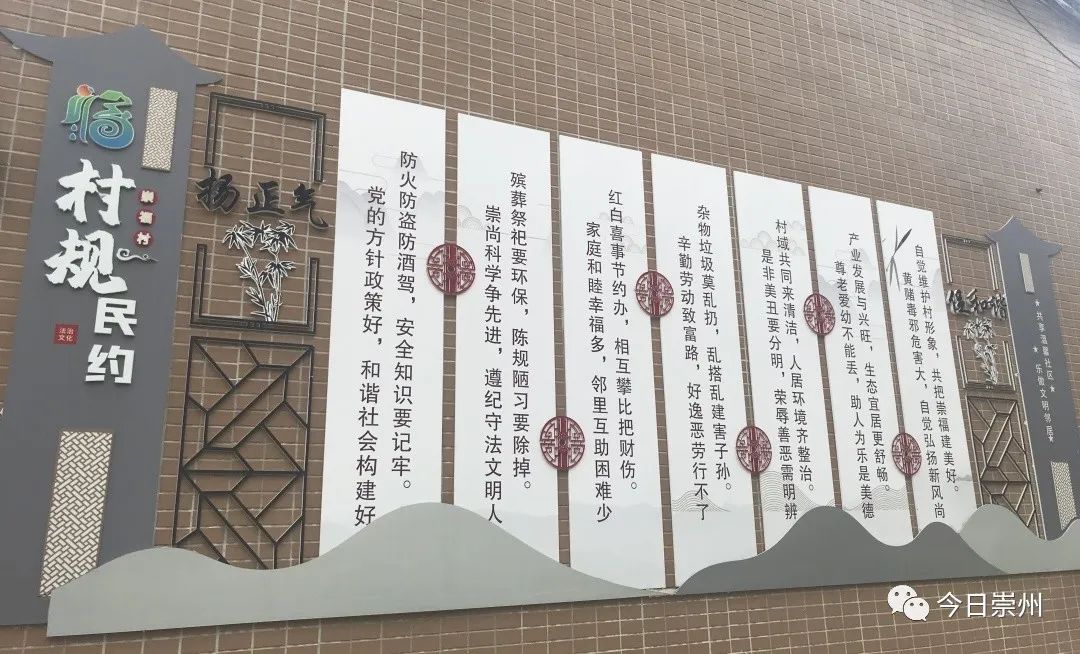 村规民约
崇福村
法治
文化
扬正气
党的方针政策好，和谐社会构建好
防火防盗防酒驾，安全知识要记牢。
崇尚科学争先进，遵纪守法文明人
殡葬祭祀要环保，陈规陋习要除掉。
家庭和睦幸福多，邻里互助困难少
红白喜事节约办，相互攀比把财伤。
辛勤劳动致富路，好逸恶劳行不了
杂物垃圾莫乱扔，乱搭乱建害子孙。
是非美丑要分明，荣辱善恶需明辨
村域共同来清洁，人居环境齐整治。
尊老爱幼不能丢，助人为乐是美德
产业发展与兴旺，生态宜居更舒畅。
黄赌毒邪危害大，自觉弘扬新风尚
自觉维护村形象，共把崇福建美好。
促和谐
★共享温馨社区★
★乐做文明邻居★
今日崇州